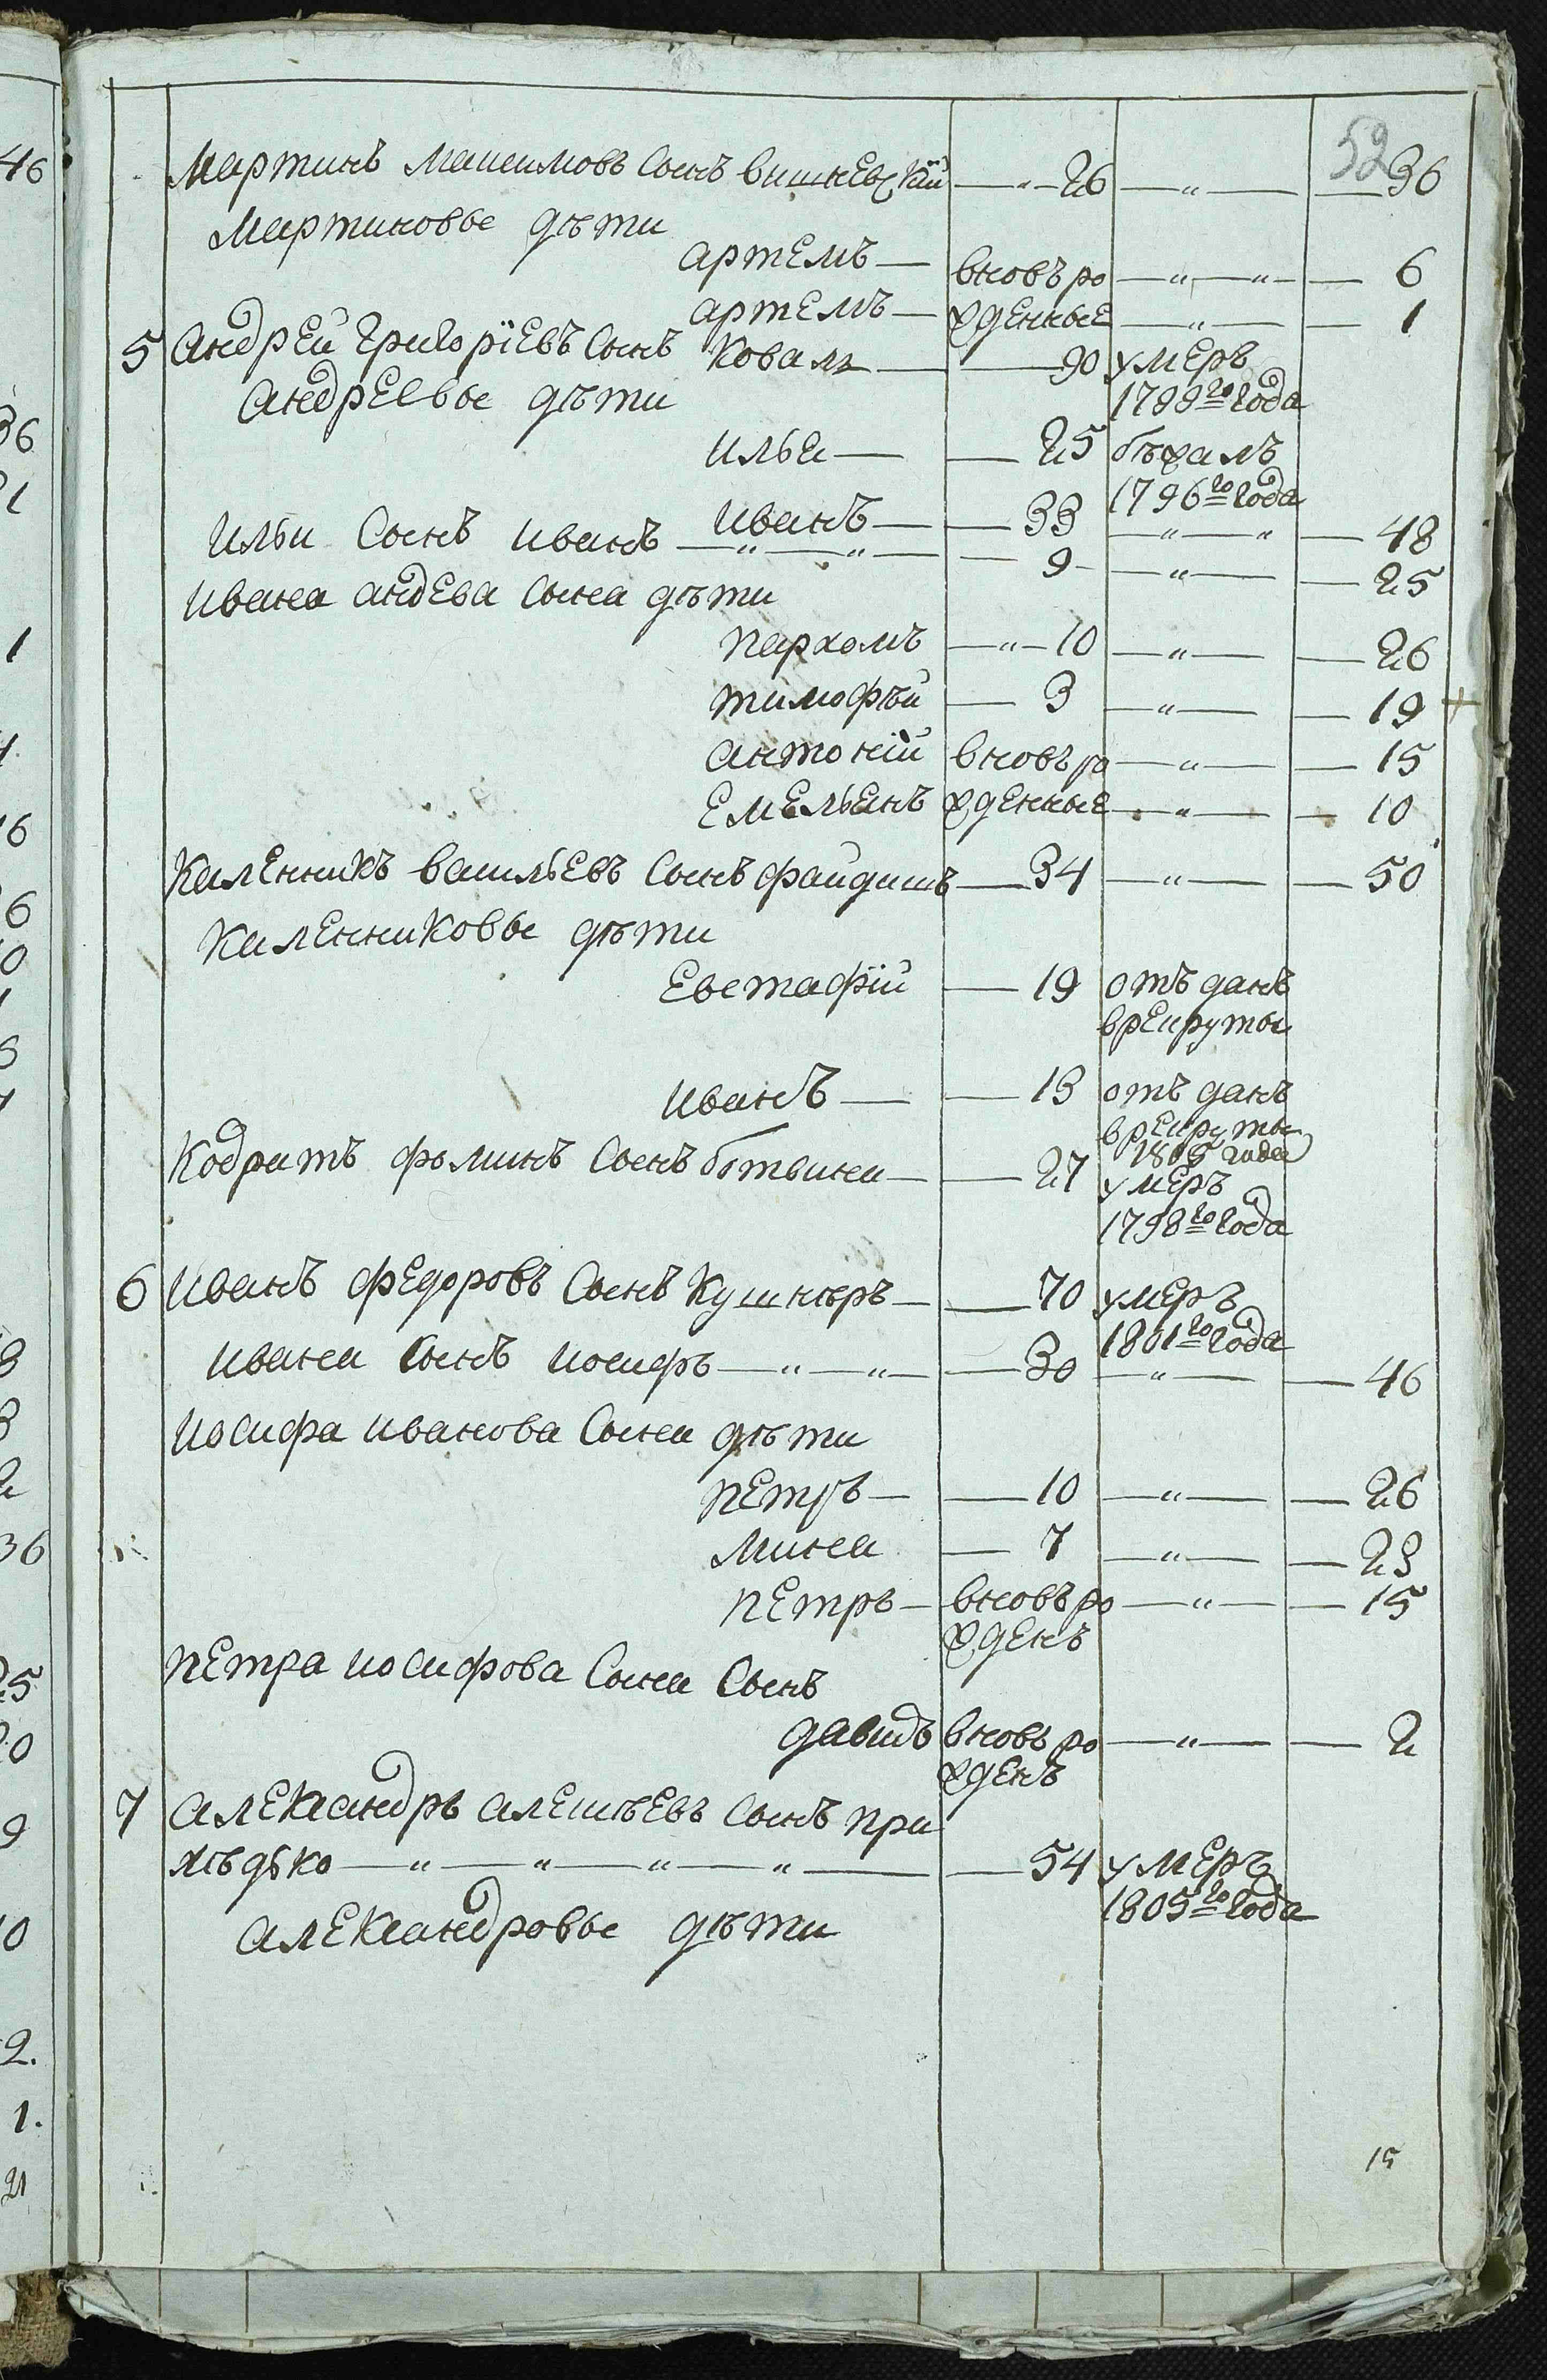 52
Мартинъ Максимовъ Сынъ Вишневскїй — 26 — „ — 36
Мартиновые дѣти
Артемъ — вновь ро — „ — „ — 6
Артемъ — жденные — „ — 1
5 Андрей Григорїевъ Сынъ Коваль — 90 умеръ
Андреевые дѣти 1799го года
Илья — 25 бѣжалъ
1796го года
Иванъ — 33 — „ — „ — 48
Ильи Сынъ Иванъ — „ — „ — 9 — „ — 25
Ивана Андева Сына дѣти
Пархомъ — „ — 10 — „ — 26
Тимофѣй — 3 — „ — 19 +
Антонїй вновь ро — „ — 15
Емельянъ жденные — „ — 10
Каленникъ Васильевъ Сынъ Файдишъ — 34 — „ — 50
Каленниковы дѣти
Евстафїй — 19 отъ данъ
в рекруты
Иванъ — 13 отъ данъ
в рекруты
1805 года
Кодратъ Фоминъ Сынъ Ботвина — 27 умеръ
1798го года
6 Иванъ Федоровъ Сынъ Кушнѣръ — 70 умеръ
1801го года
Ивана Сынъ Иосифъ — „ — „ — 30 — „ — 46
Иосифа Иванова Сына дѣти
Петръ — 10 — „ — 26
Мина — 7 — „ — 23
Петръ — вновь ро — „ — 15
жденъ
Петра Иосифова Сына Сынъ
Давидъ вновь ро — „ — 2
жденъ
7 Александръ Алексѣевъ Сынъ При
хѣдько — „ — „ — „ — „ — 54 умеръ
1805го года
Александровые дѣти
15